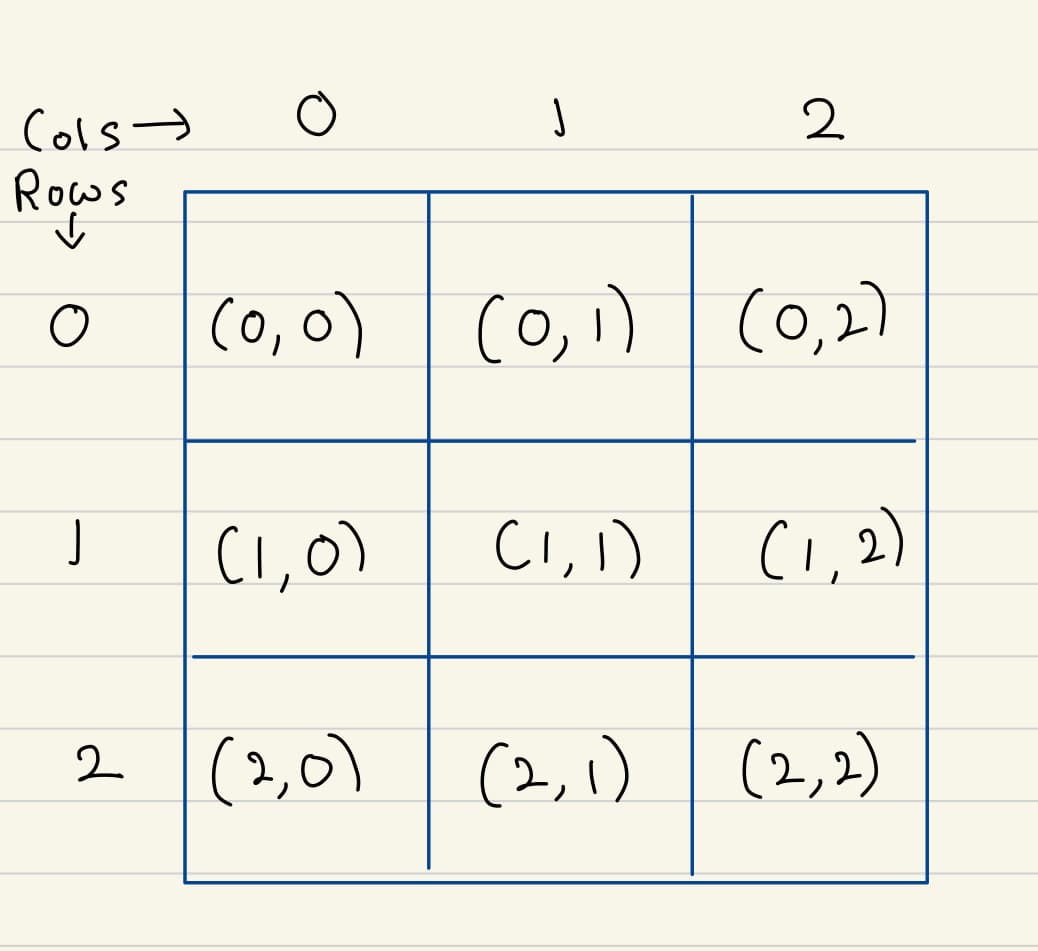 Cols → 0 1 2
Rows
↓
0 (0,0) (0,1) (0,2)
1 (1,0) (1,1) (1,2)
2 (2,0) (2,1) (2,2)